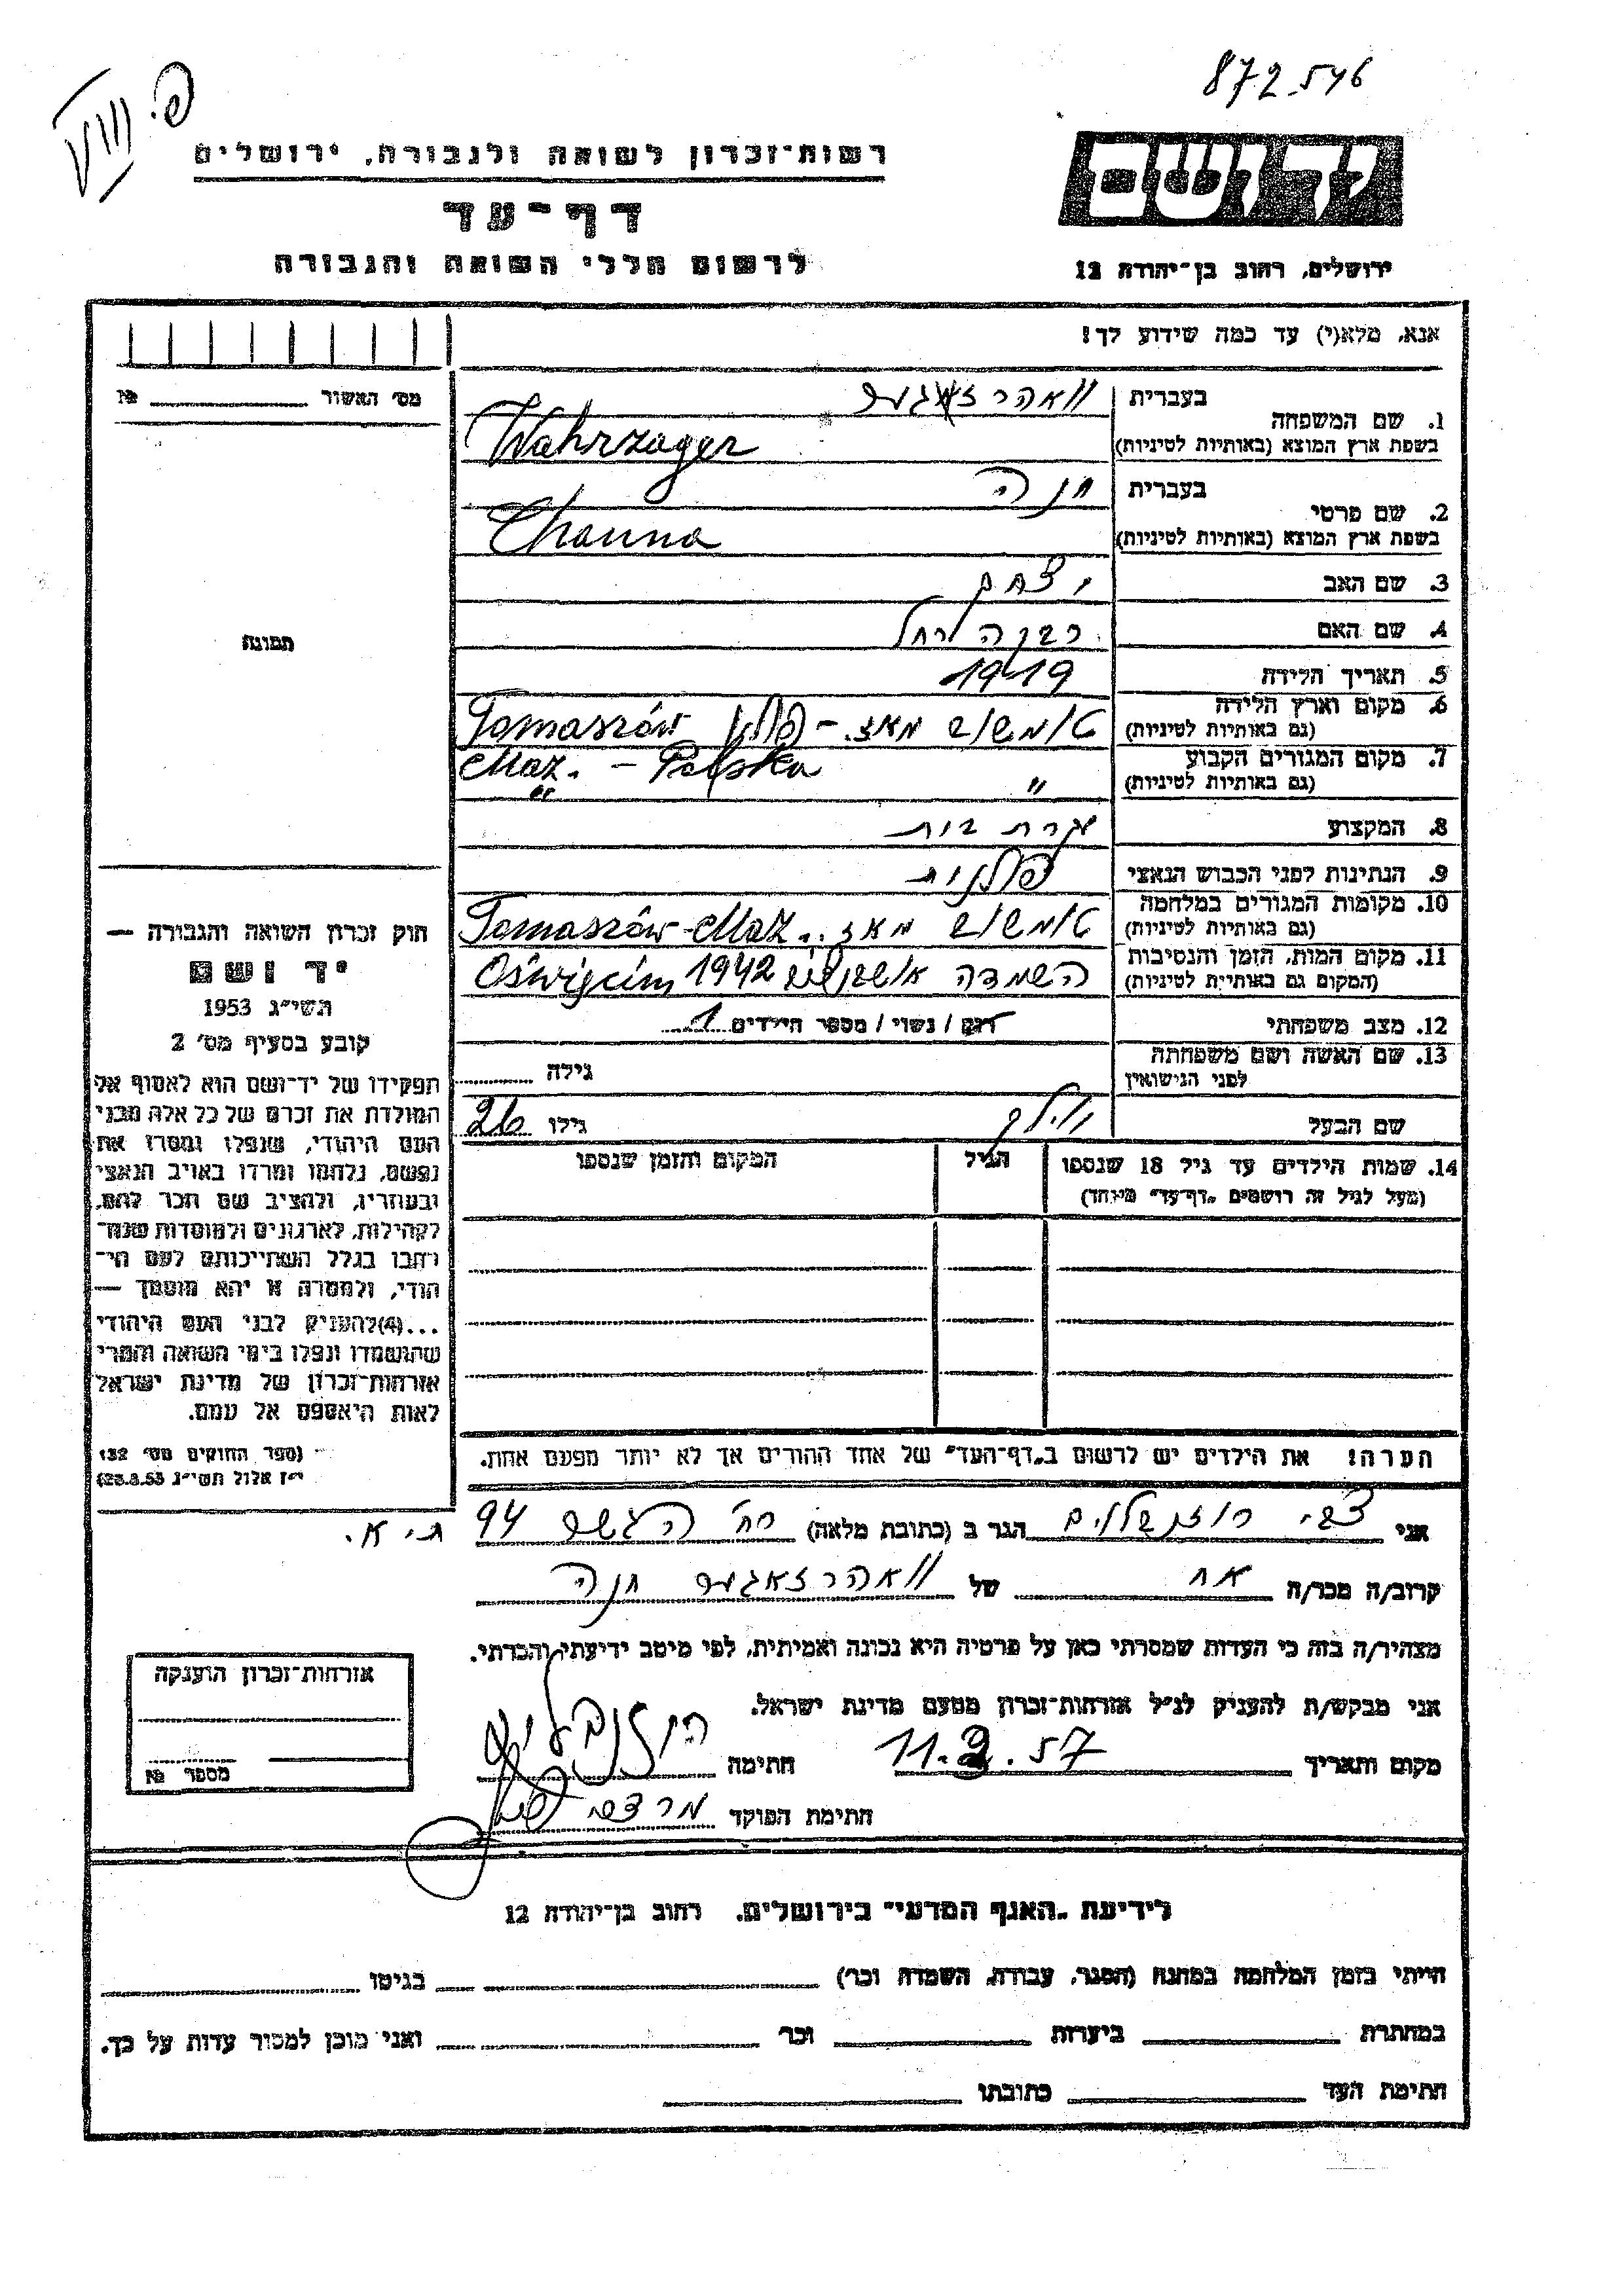 872546
רשות־זכרון לשואה ולגבורה, ירושלים
דף־עד
לרשום חללי השואה והגבורה
יד ושם
ירושלים, רחוב בן־יהודה 12
אנא, מלא(י) עד כמה שידוע לך!
מס׳ האשור № 
1. שם המשפחה בעברית וואהרזאגער
בשפת ארץ המוצא (באותיות לטיניות) Wahrzager
2. שם פרטי בעברית חנה
בשפת ארץ המוצא (באותיות לטיניות) Channa
3. שם האב יצחק
4. שם האם רבקה רחל
5. תאריך הלידה 1919
6. מקום וארץ הלידה (גם באותיות לטיניות) טומשוב מאז. – פולין Tomaszów Maz. – Polska
7. מקום המגורים הקבוע (גם באותיות לטיניות) " "
8. המקצוע עקרת בית
9. הנתינות לפני הכבוש הנאצי פולנית
10. מקומות המגורים במלחמה (גם באותיות לטיניות) טומשוב מאז. Tomaszów-Maz.
11. מקום המות, הזמן והנסיבות (המקום גם באותיות לטיניות) השמדה אושביץ 1942 Oświęcim
12. מצב משפחתי רוק / נשוי / מספר הילדים 1
13. שם האשה ושם משפחתה לפני הנישואין גילה
שם הבעל גילו 26
14. שמות הילדים עד גיל 18 שנספו הגיל המקום והזמן שנספו
(מעל לגיל זה רושמים „דף־עד" מיוחד)
הערה! את הילדים יש לרשום ב„דף־העד" של אחד ההורים אך לא יותר מפעם אחת.
תמונה
חוק זכרון השואה והגבורה —
יד ושם
תשי״ג 1953
קובע בסעיף מס׳ 2
תפקידו של יד־ושם הוא לאסוף אל
המולדת את זכרם של כל אלה מבני
העם היהודי, שנפלו ומסרו את
נפשם, נלחמו ומרדו באויב הנאצי
ובעוזריו, ולהציב שם וזכר להם,
לקהילות, לארגונים ולמוסדות שנח־
רבו בגלל השתייכותם לעם הי־
הודי, ולמטרה זו יהא מוסמך —
...(4)להעניק לבני העם היהודי
שהושמדו ונפלו בימי השואה והמרי
אזרחות־זכרון של מדינת ישראל
לאות היאספם אל עמם.
(ספר החוקים מס׳ 132
י״ז אלול תשי״ג 28.8.53)
אני צבי רוזנבלום הגר ב (כתובת מלאה) רח׳ 94 ת. א.
קרוב/ה מכר/ה אח של וואהרזאגער חנה
מצהיר/ה בזה כי העדות שמסרתי כאן על פרטיה היא נכונה ואמיתית, לפי מיטב ידיעתי והכרתי.
אני מבקש/ת להעניק לנ״ל אזרחות־זכרון מטעם מדינת ישראל.
מקום ותאריך 11.3.57 חתימה רוזנבלום
חתימת הפוקד מרדכי
אזרחות־זכרון הוענקה
מספר №
לידיעת „האגף המדעי" בירושלים, רחוב בן־יהודה 12
הייתי בזמן המלחמה במחנה (הסגר, עבודה, השמדה וכו׳) בגיטו
במחתרת ביערות וכו׳ ואני מוכן למסור עדות על כך.
חתימת העד כתובתו